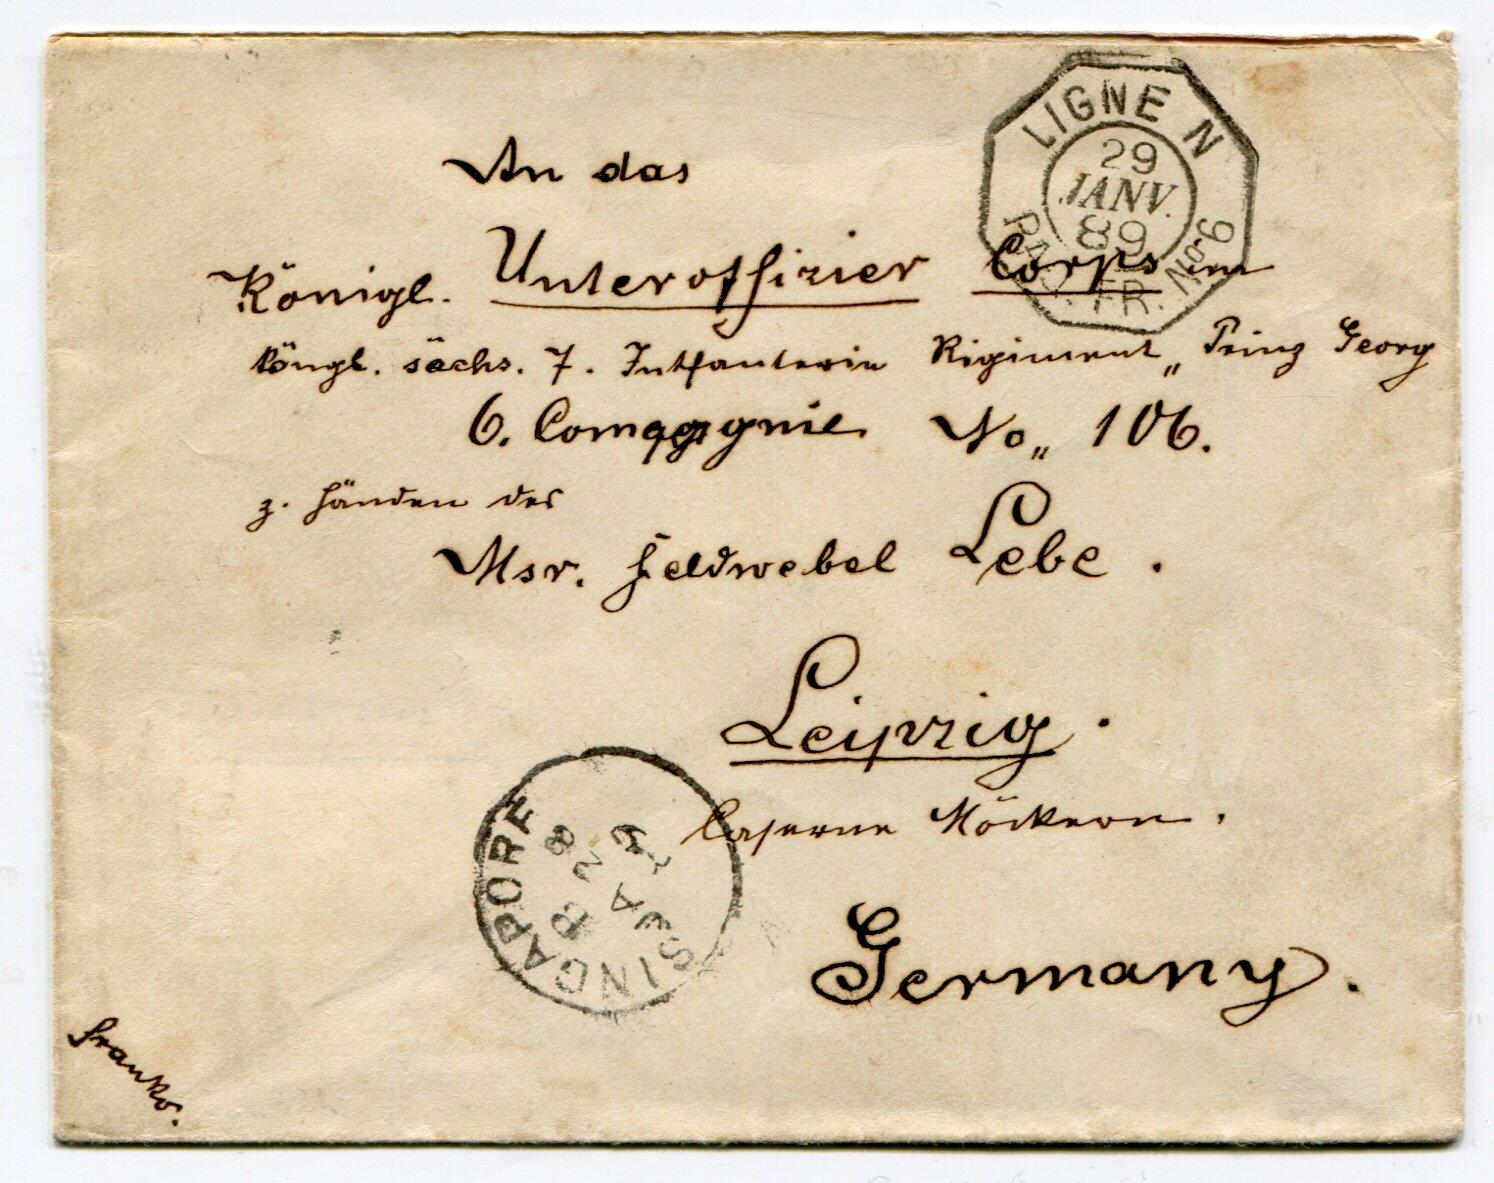 LIGNE N
29
JANV.
89
PAQ. FR. No 6
An das
Königl. Unteroffizier Corps im
köngl. sächs. 7. Intfanterie Rigiment „ Prinz Georg
6. Compagnie No„ 106.
z. Händen des
Msr. Feldwebel Lebe.
Leipzig.
Caserne Möckern.
Germany.
SINGAPORE
JA 29
89
franko.